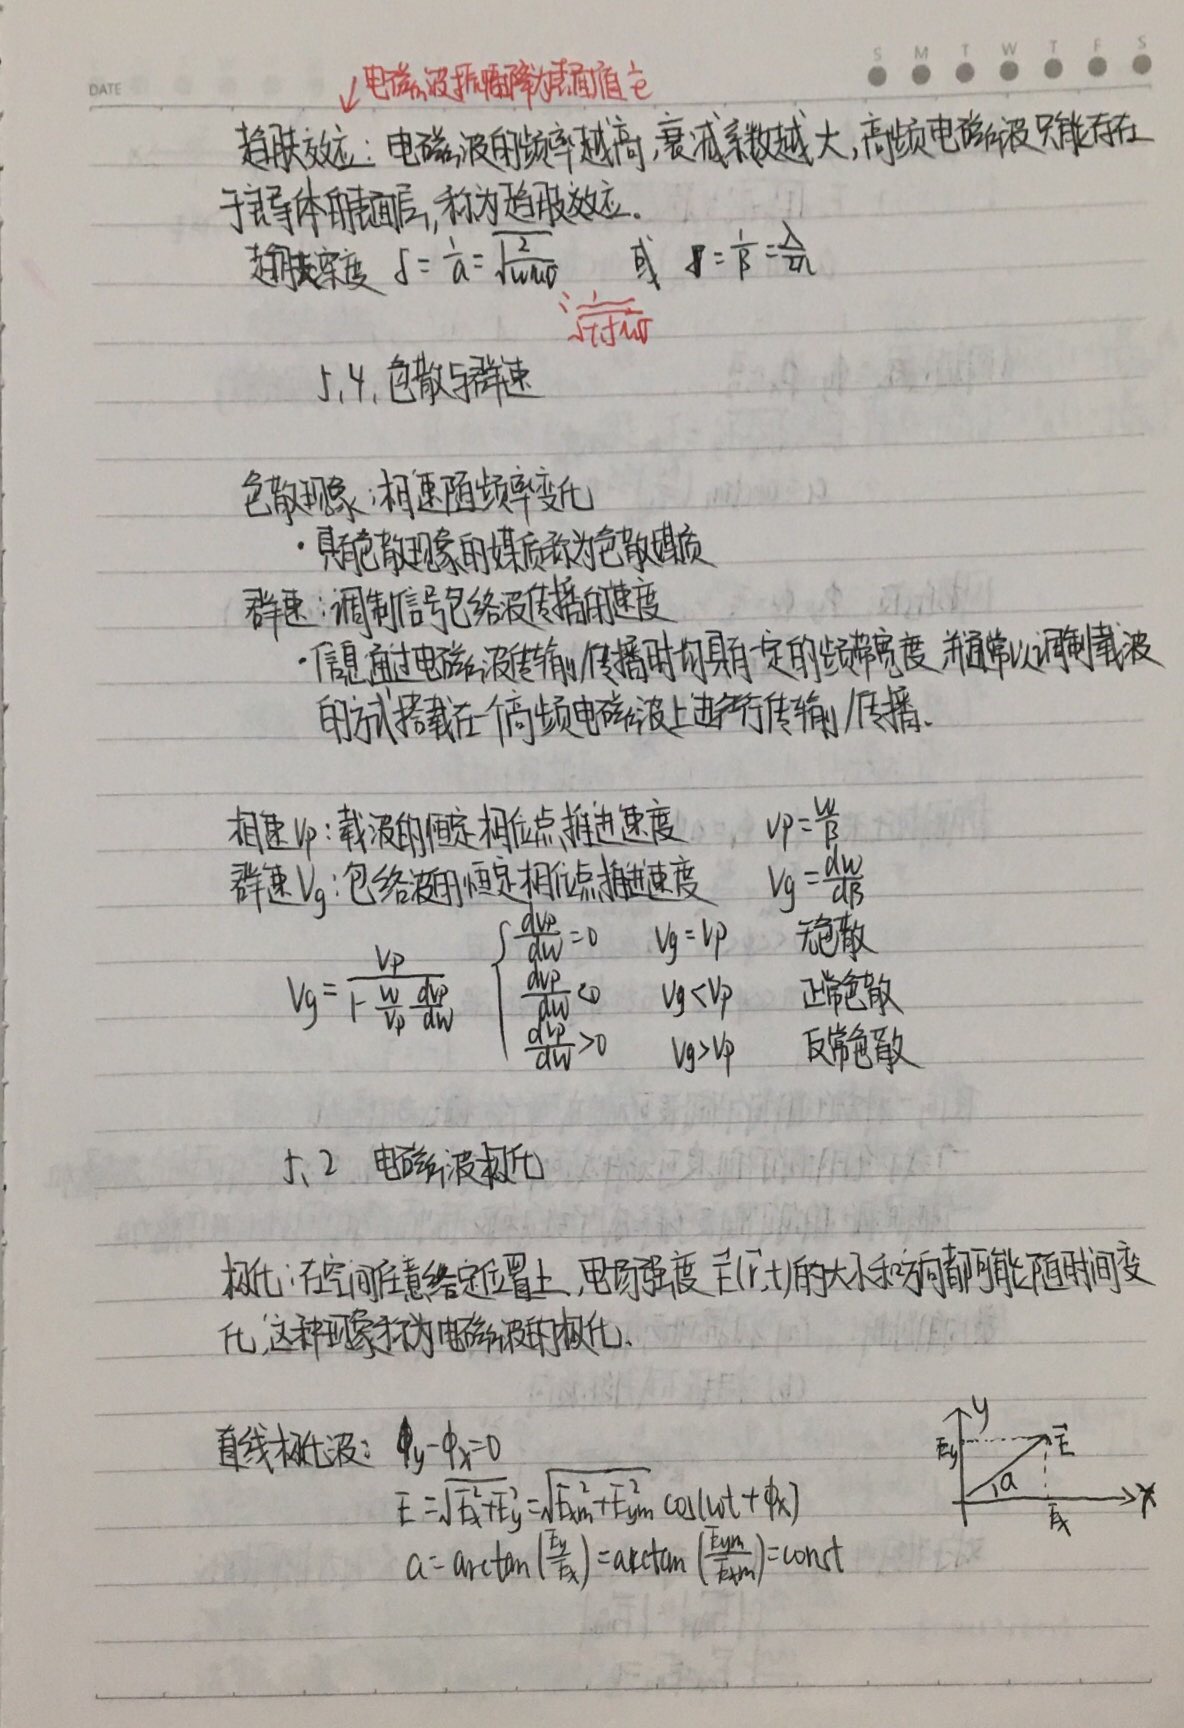 DATE
S M T W T F S
↙电磁波振幅降为表面值 1/e
趋肤效应：电磁波的频率越高，衰减系数越大，高频电磁波只能存在
于良导体的表面层，称为趋肤效应.
趋肤深度 δ = 1/α = √(2/ωμσ) 或 δ = 1/β = λ/2π
1/√(πfμσ)
5.4. 色散与群速
色散现象：相速随频率变化
· 具有色散现象的媒质称为色散媒质
群速：调制信号包络波传播的速度
· 信息通过电磁波传输/传播时均具有一定的频带宽度 并通常以调制载波
的方式搭载在一个高频电磁波上进行传输/传播.
相速Vp：载波的恒定相位点推进速度 Vp = ω/β
群速Vg：包络波的恒定相位点推进速度 Vg = dω/dβ
Vg = Vp/(1 - ω/Vp dVp/dω)
dVp/dω = 0 Vg = Vp 无色散
dVp/dω < 0 Vg < Vp 正常色散
dVp/dω > 0 Vg > Vp 反常色散
5.2 电磁波极化
极化：在空间任意给定位置上，电场强度 E⃗(r⃗,t)的大小和方向都可能随时间变
化，这种现象称为电磁波的极化.
直线极化波： ϕy - ϕx = 0
E = √(Ex² + Ey²) = √(Exm² + Eym²) cos(ωt + ϕx)
α = arctan(Ey/Ex) = arctan(Eym/Exm) = const
y
Ey E⃗
α
Ex x